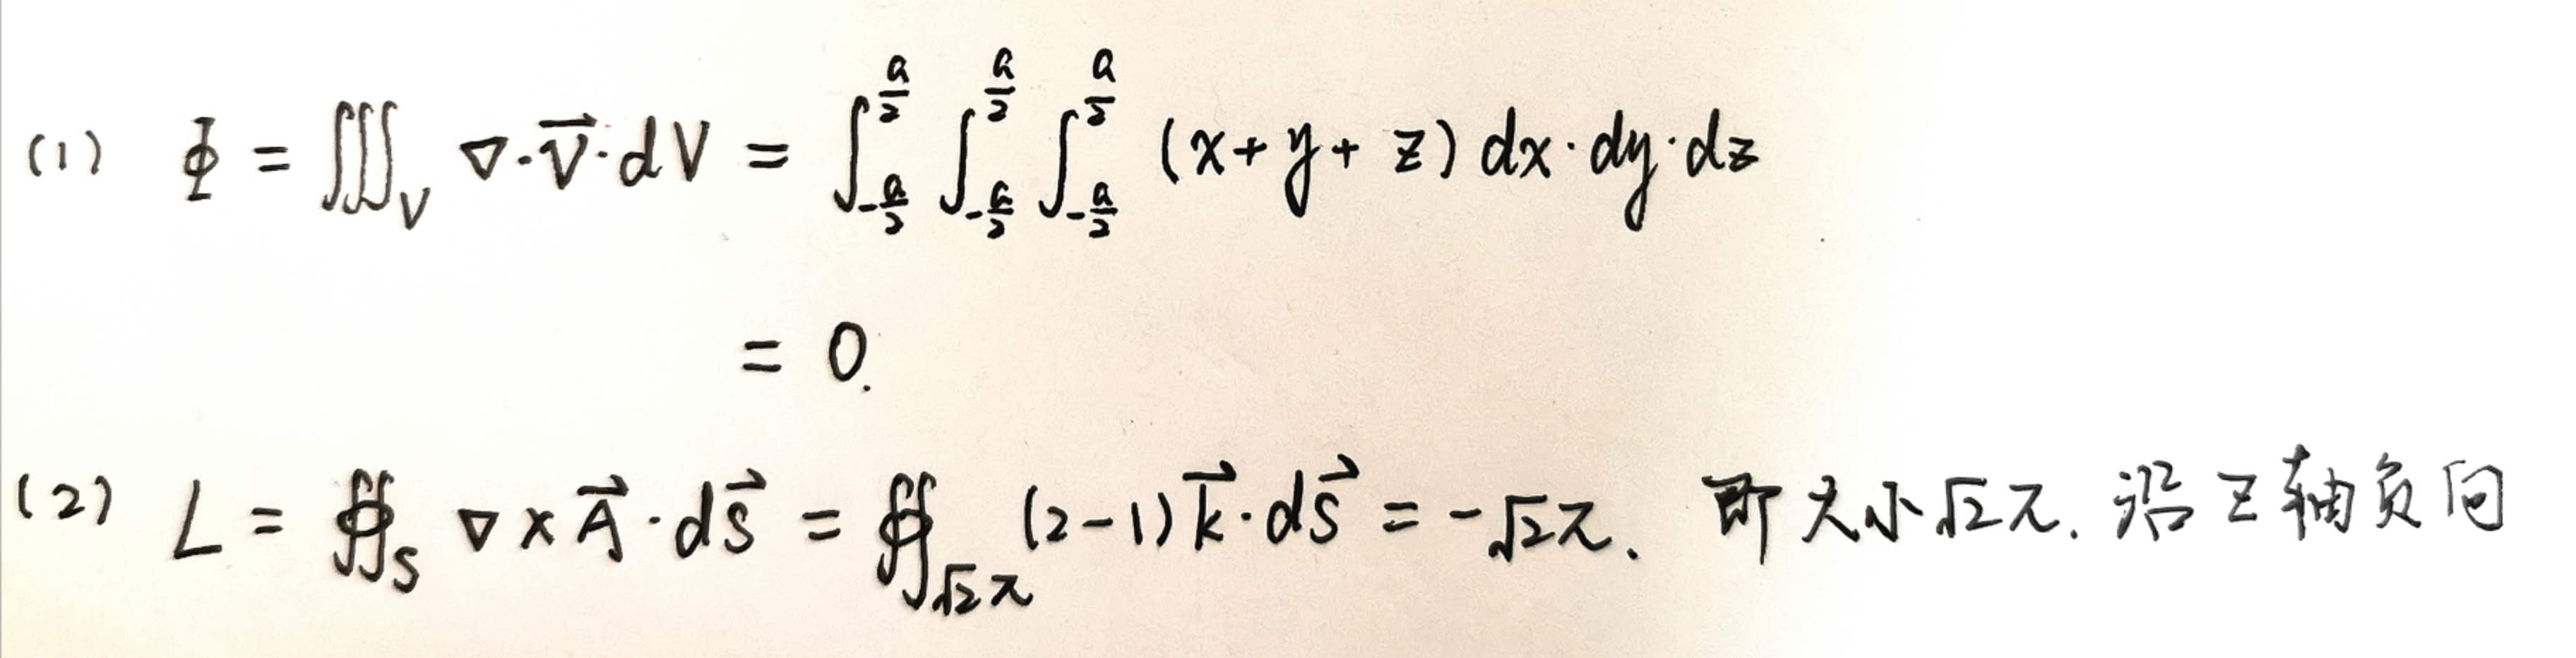 (1) Φ = ∭_V ∇·V⃗·dV = ∫_{-a/2}^{a/2} ∫_{-a/2}^{a/2} ∫_{-a/2}^{a/2} (x+y+z) dx·dy·dz
= 0.
(2) L = ∯_S ∇×A⃗·ds⃗ = ∯_{√2π} (2-1)k⃗·ds⃗ = -√2π. 即大小√2π. 沿z轴负向